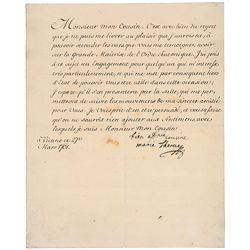 Monsieur mon Cousin. C'est avec bien du regret
que je ne puis me livrer au plaisir que j'aurois eu, à
pouvoir seconder les vues que vous me temoignez avoir
sur la grande Maitrise de l'Ordre Theutonique. J'ai pris
à ce sujet un Engagement pour quelqu'un qui m'interesse
très particulierement, et qui me met par consequent hors
d'Etat de pouvoir vous être utile dans cette occasion;
J'espere qu'il s'en presentera par la suite, qui me per-
mettront de suivre les mouvemens de ma sincere amitié
pour vous. Je vous prie d'en être persuadé, et
qu'on ne sauroit rien ajouter aux Sentimens, avec
lesquels je suis Monsieur Mon Cousin
à Vienne ce 27
Mars 1761.
bien affectionée cousine
Marie Therese